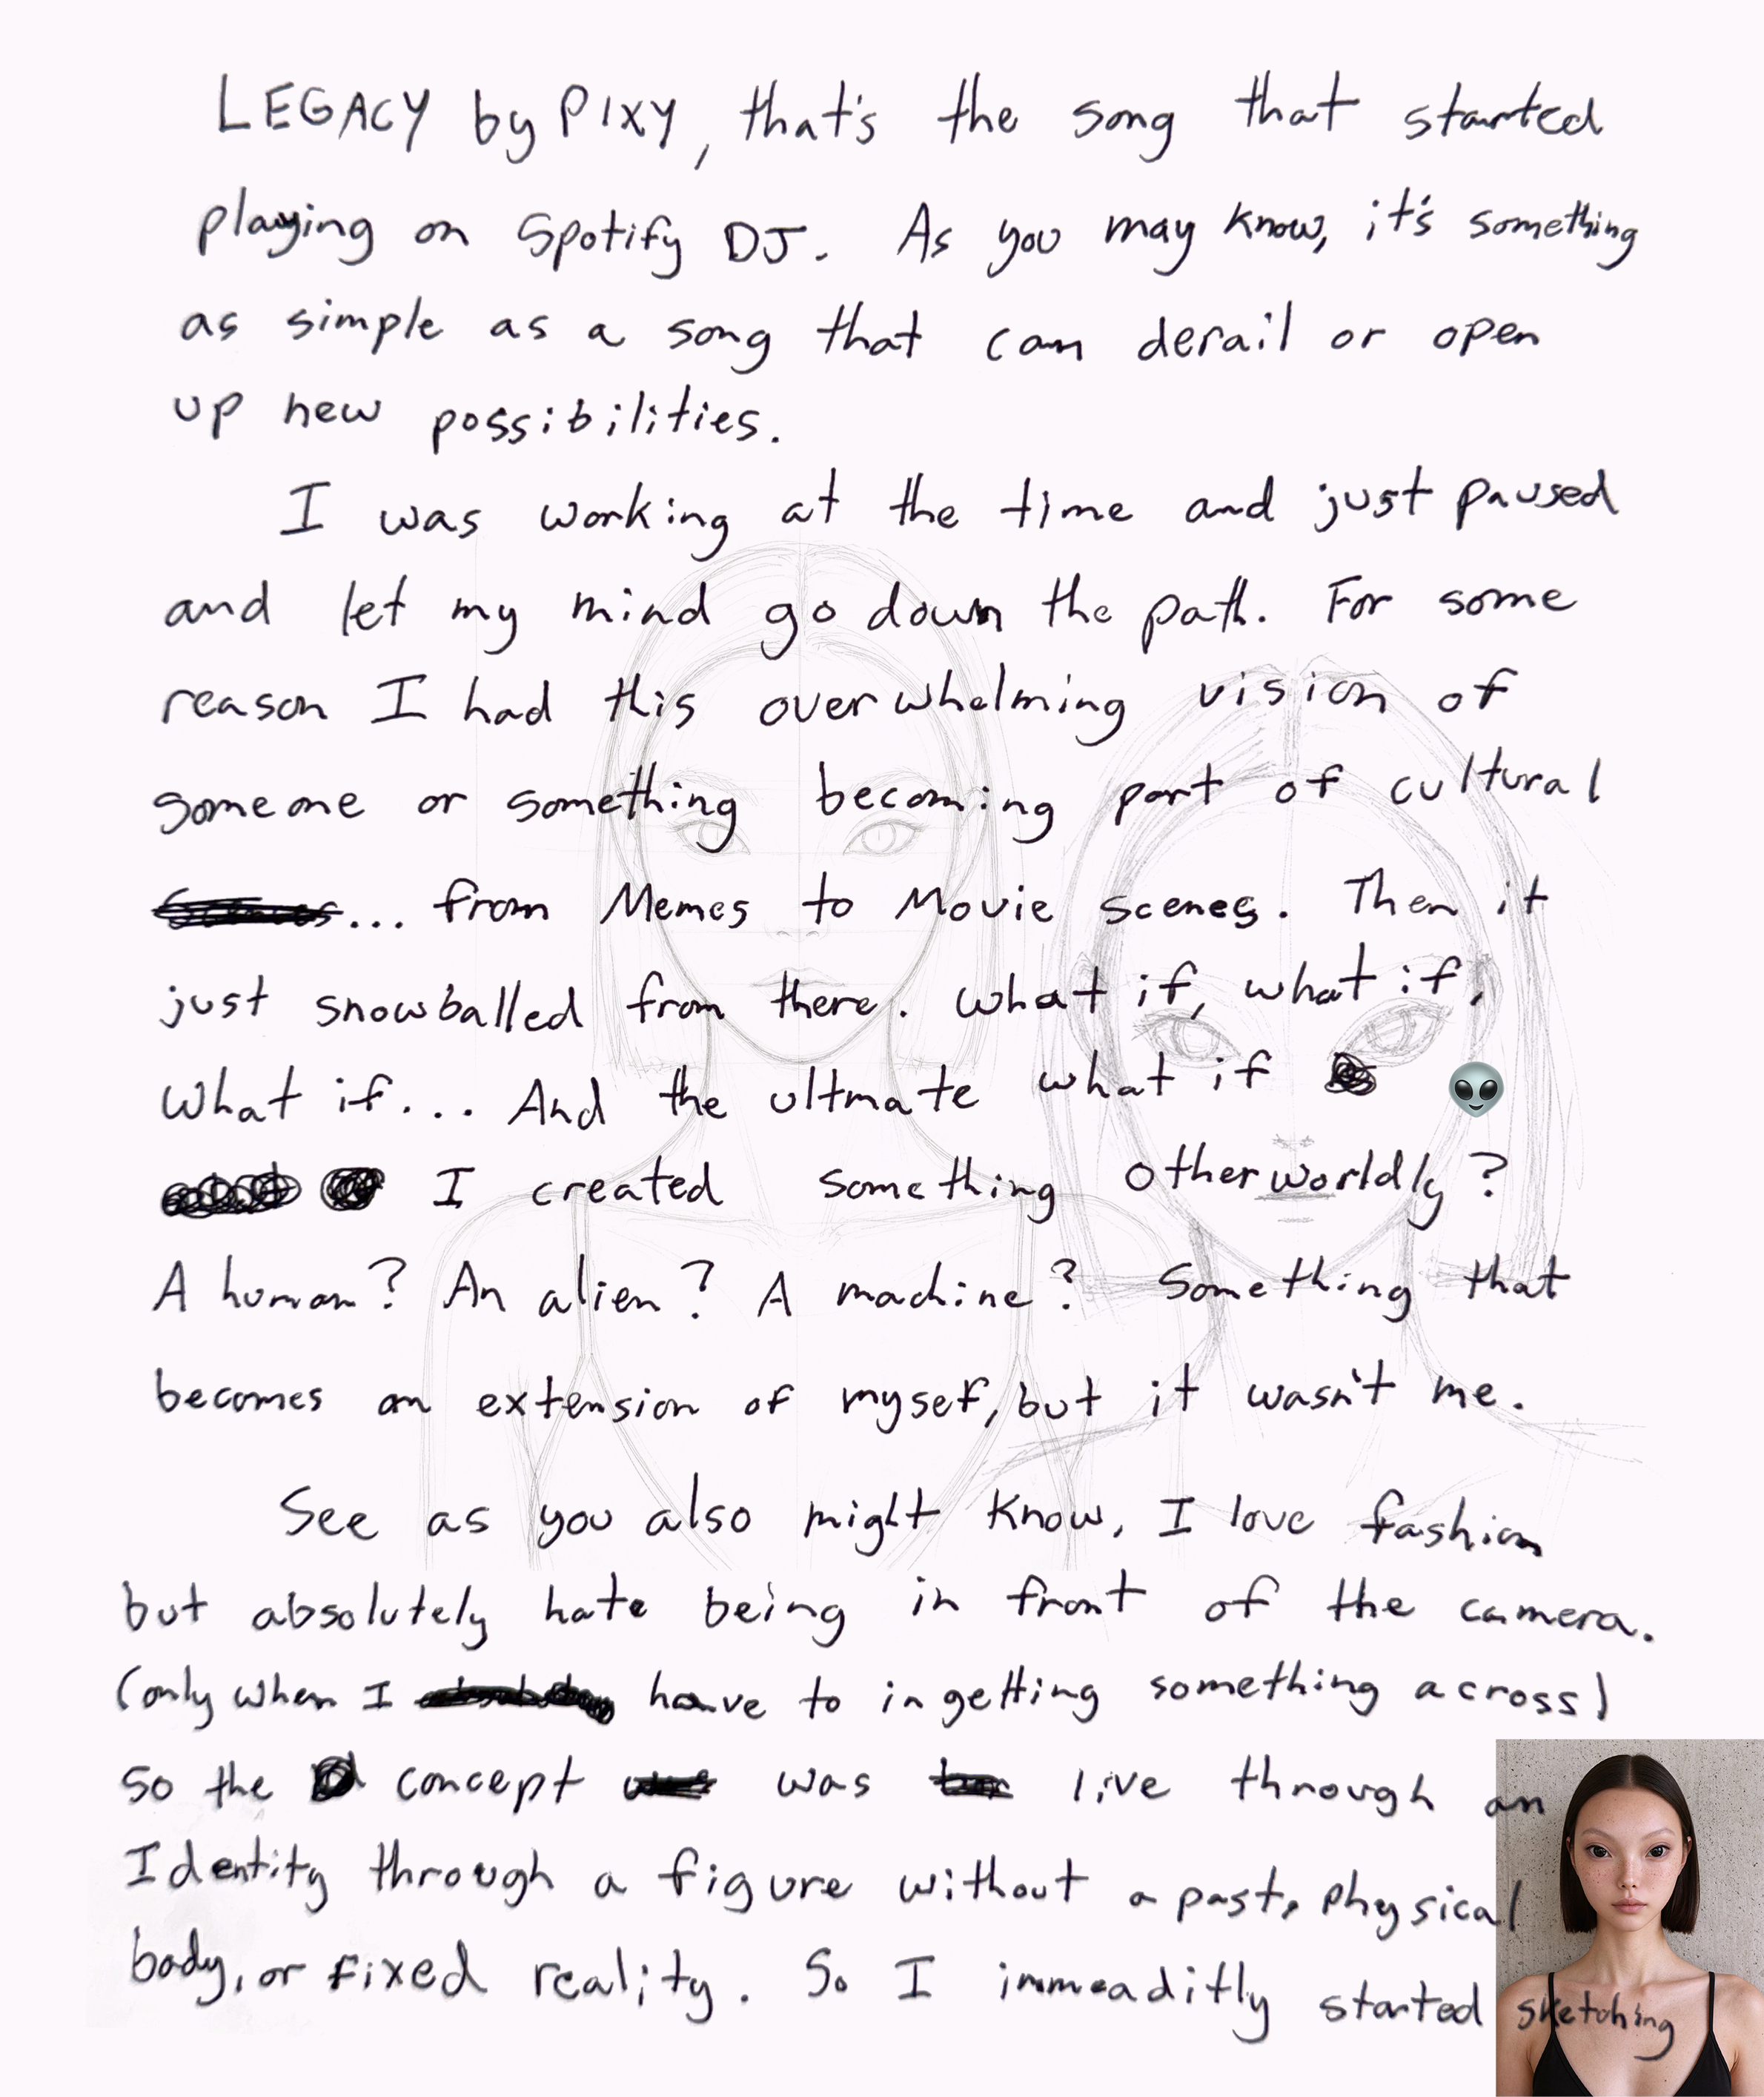 LEGACY by PIXY, that's the song that started
playing on Spotify DJ. As you may know, it's something
as simple as a song that can derail or open
up new possibilities.
I was working at the time and just paused
and let my mind go down the path. For some
reason I had this overwhelming vision of
someone or something becoming part of cultural
... from Memes to Movie scenes. Then it
just snowballed from there. What if, what if,
What if... And the ultmate what if 👽
I created something otherworldly?
A human? An alien? A machine? Something that
becomes an extension of mysef, but it wasn't me.
See as you also might know, I love fashion
but absolutely hate being in front of the camera.
(only when I have to in getting something across)
so the concept was live through an
Identity through a figure without a past, physical
body, or fixed reality. So I immeaditly started sketching